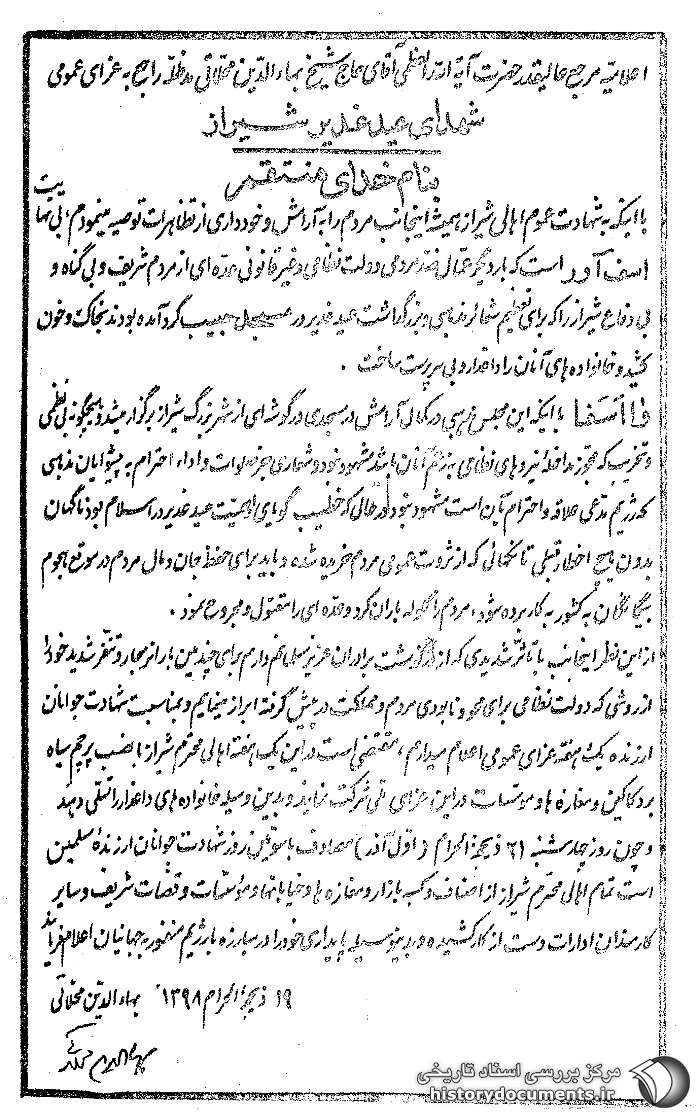 اعلامیه مرجع عالیقدر حضرت آیة الله العظمی آقای حاج شیخ بهاءالدین محلاتی مدظله راجع به عزای عمومی
شهدای عید غدیر شیراز
بنام خدای منتقم
با اینکه به شهادت عموم اهالی شیراز همیشه اینجانب مردم را به آرامش و خودداری از تظاهرات توصیه مینمودم،
اسف آور است که بار دیگر عمال ضد مردمی دولت نظامی و غیر قانونی عده ای از مردم شریف و بی گناه و
بی دفاع شیراز را که برای تعظیم شعائر مذهبی و بزرگداشت عید غدیر در مسجد حبیب گرد آمده بودند بخاک و خون
کشید و خانواده های آنان را داغدار و بی سرپرست ساخت .
فااسفا با اینکه این مجلس مذهبی در کمال آرامش در مسجدی در گوشه ای از شهر بزرگ شیراز برگزار میشد و هیچگونه بی نظمی
و تخریب که مجوز مداخله نیروهای نظامی بزعم آنان باشد مشهود نبود و شعاری جز صلوات و اداء احترام به پیشوایان مذهبی
که رژیم مدعی علاقه و احترام بآن است مشهود نبود در حالی که خطیب گویای اهمیت عید غدیر در اسلام بود ناگهان
بدون هیچ اخطار قبلی تا که از ثروت عمومی مردم خریده شده و باید برای حفظ جان و مال مردم در موقع هجوم
بیگانگان به کشور به کار برده شود، مردم را گلوله باران کرد و عده ای را مقتول و مجروح نمود .
از این نظر اینجانب با تاثر شدیدی که از درگذشت برادران عزیز مسلمانم دارم برای چندمین بار انزجار و تنفر شدید خود را
از روشی که دولت نظامی برای محو و نابودی مردم و مملکت در پیش گرفته ابراز مینمایم و بمناسبت شهادت جوانان
ارزنده یک هفته عزای عمومی اعلام میدارم، مقتضی است در این یک هفته اهالی محترم شیراز با نصب پرچم سیاه
بر دکاکین و مغازه ها و موسسات در این عزای ملی شرکت نمایند و بدین وسیله خانواده های داغدار را تسلی دهند
و چون روز چهارشنبه ۲۱ ذیحجة الحرام (اول آذر) مصادف با سومین روز شهادت جوانان ارزنده مسلمین
است تمام اهالی محترم شیراز از اصناف و کسبه بازار و مغازه ها و خیابانها و مؤسسات و قضات شریف و سایر
کارمندان ادارات دست از کار کشیده و بدینوسیله پایداری خود را در مبارزه با رژیم منفور به جهانیان اعلام فرمایند
۱۹ ذیحجة الحرام ۱۳۹۸ بهاءالدین محلاتی
مرکز بررسی اسناد تاریخی
historydocuments.ir